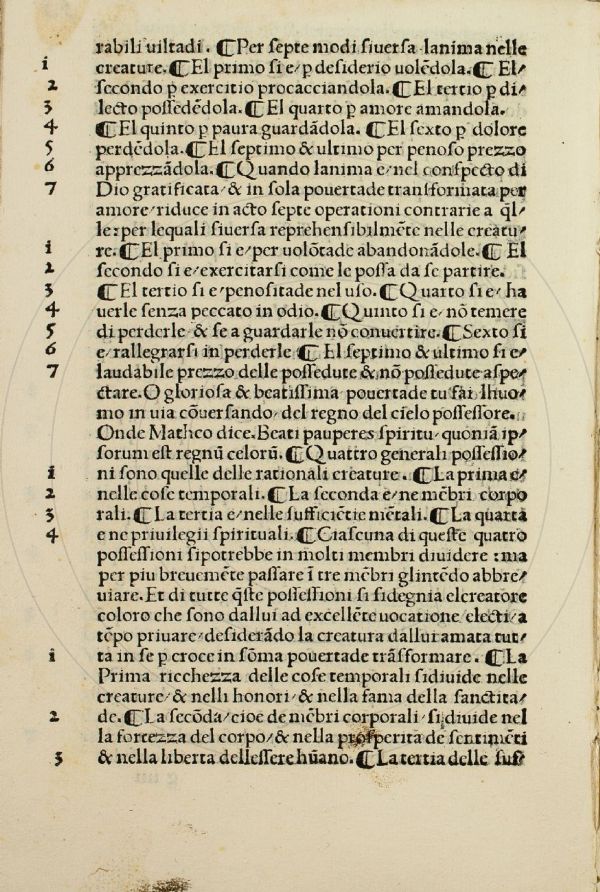 rabili uiltadi. ⁋Per septe modi siuersa lanima nelle
i creature.⁋El primo si e/p desiderio uolẽdola.⁋El/
2 secondo p exercitio procacciandola.⁋El tertio p di/
3 lecto possedẽdola.⁋El quarto p amore amandola.
4 ⁋El quinto p paura guardãdola. ⁋El sexto p dolore
5 perdẽdola.⁋El septimo & ultimo per penoso prezzo
6 apprezzãdola.⁋Quando lanima e/nel conspecto di
7 Dio gratificata/& in sola pouertade transformata per
amore/riduce in acto septe operationi contrarie a q̃l/
le:per lequali siuersa reprehensibilmẽte nelle creatu/
i re.⁋El primo si e/per uolõtade abandonãdole.⁋El
2 secondo si e/exercitarsi come le possa da se partire.
3 ⁋El tertio si e/penositade nel uso.⁋Quarto si e/ha
4 uerle senza peccato in odio.⁋Quinto si e/nõ temere
5 di perderle/& se a guardarle nõ conuertire.⁋Sexto si
6 e/rallegrarsi in perderle ⁋El septimo & ultimo si e/
7 laudabile prezzo delle possedute & nõ possedute aspe/
ctare.O gloriosa & beatissima pouertade tu fai lhuo/
mo in uia cõuersando/del regno del cielo possessore.
Onde Matheo dice.Beati pauperes spiritu/quoniã ip/
sorum est regnũ celorũ.⁋Quattro generali possessio/
i ni sono quelle delle rationali creature.⁋La prima e/
2 nelle cose temporali.⁋La seconda e/ne mẽbri corpo
3 rali.⁋La tertia e/nelle sufficiẽtie mẽtali.⁋La quarta
4 e ne priuilegii spirituali.⁋Ciascuna di queste quatro
possessioni sipotrebbe in molti membri diuidere:ma
per piu breuemẽte passare ĩ tre mẽbri glintẽdo abbre/
uiare.Et di tutte q̃ste possessioni si sidegnia elcreatore
coloro che sono dallui ad excellẽte uocatione electi/a
tẽpo priuare/desiderãdo la creatura dallui amata tut/
i ta in se p croce in sõma pouertade trãsformare. ⁋La
Prima ricchezza delle cose temporali sidiuide nelle
creature/& nelli honori/& nella fama della sanctita/
2 de.⁋La secõda/cioe de mẽbri corporali/sidiuide nel
la fortezza del corpo/& nella prosperita de sentimẽti
3 & nella liberta dellessere hũano.⁋La tertia delle suf/